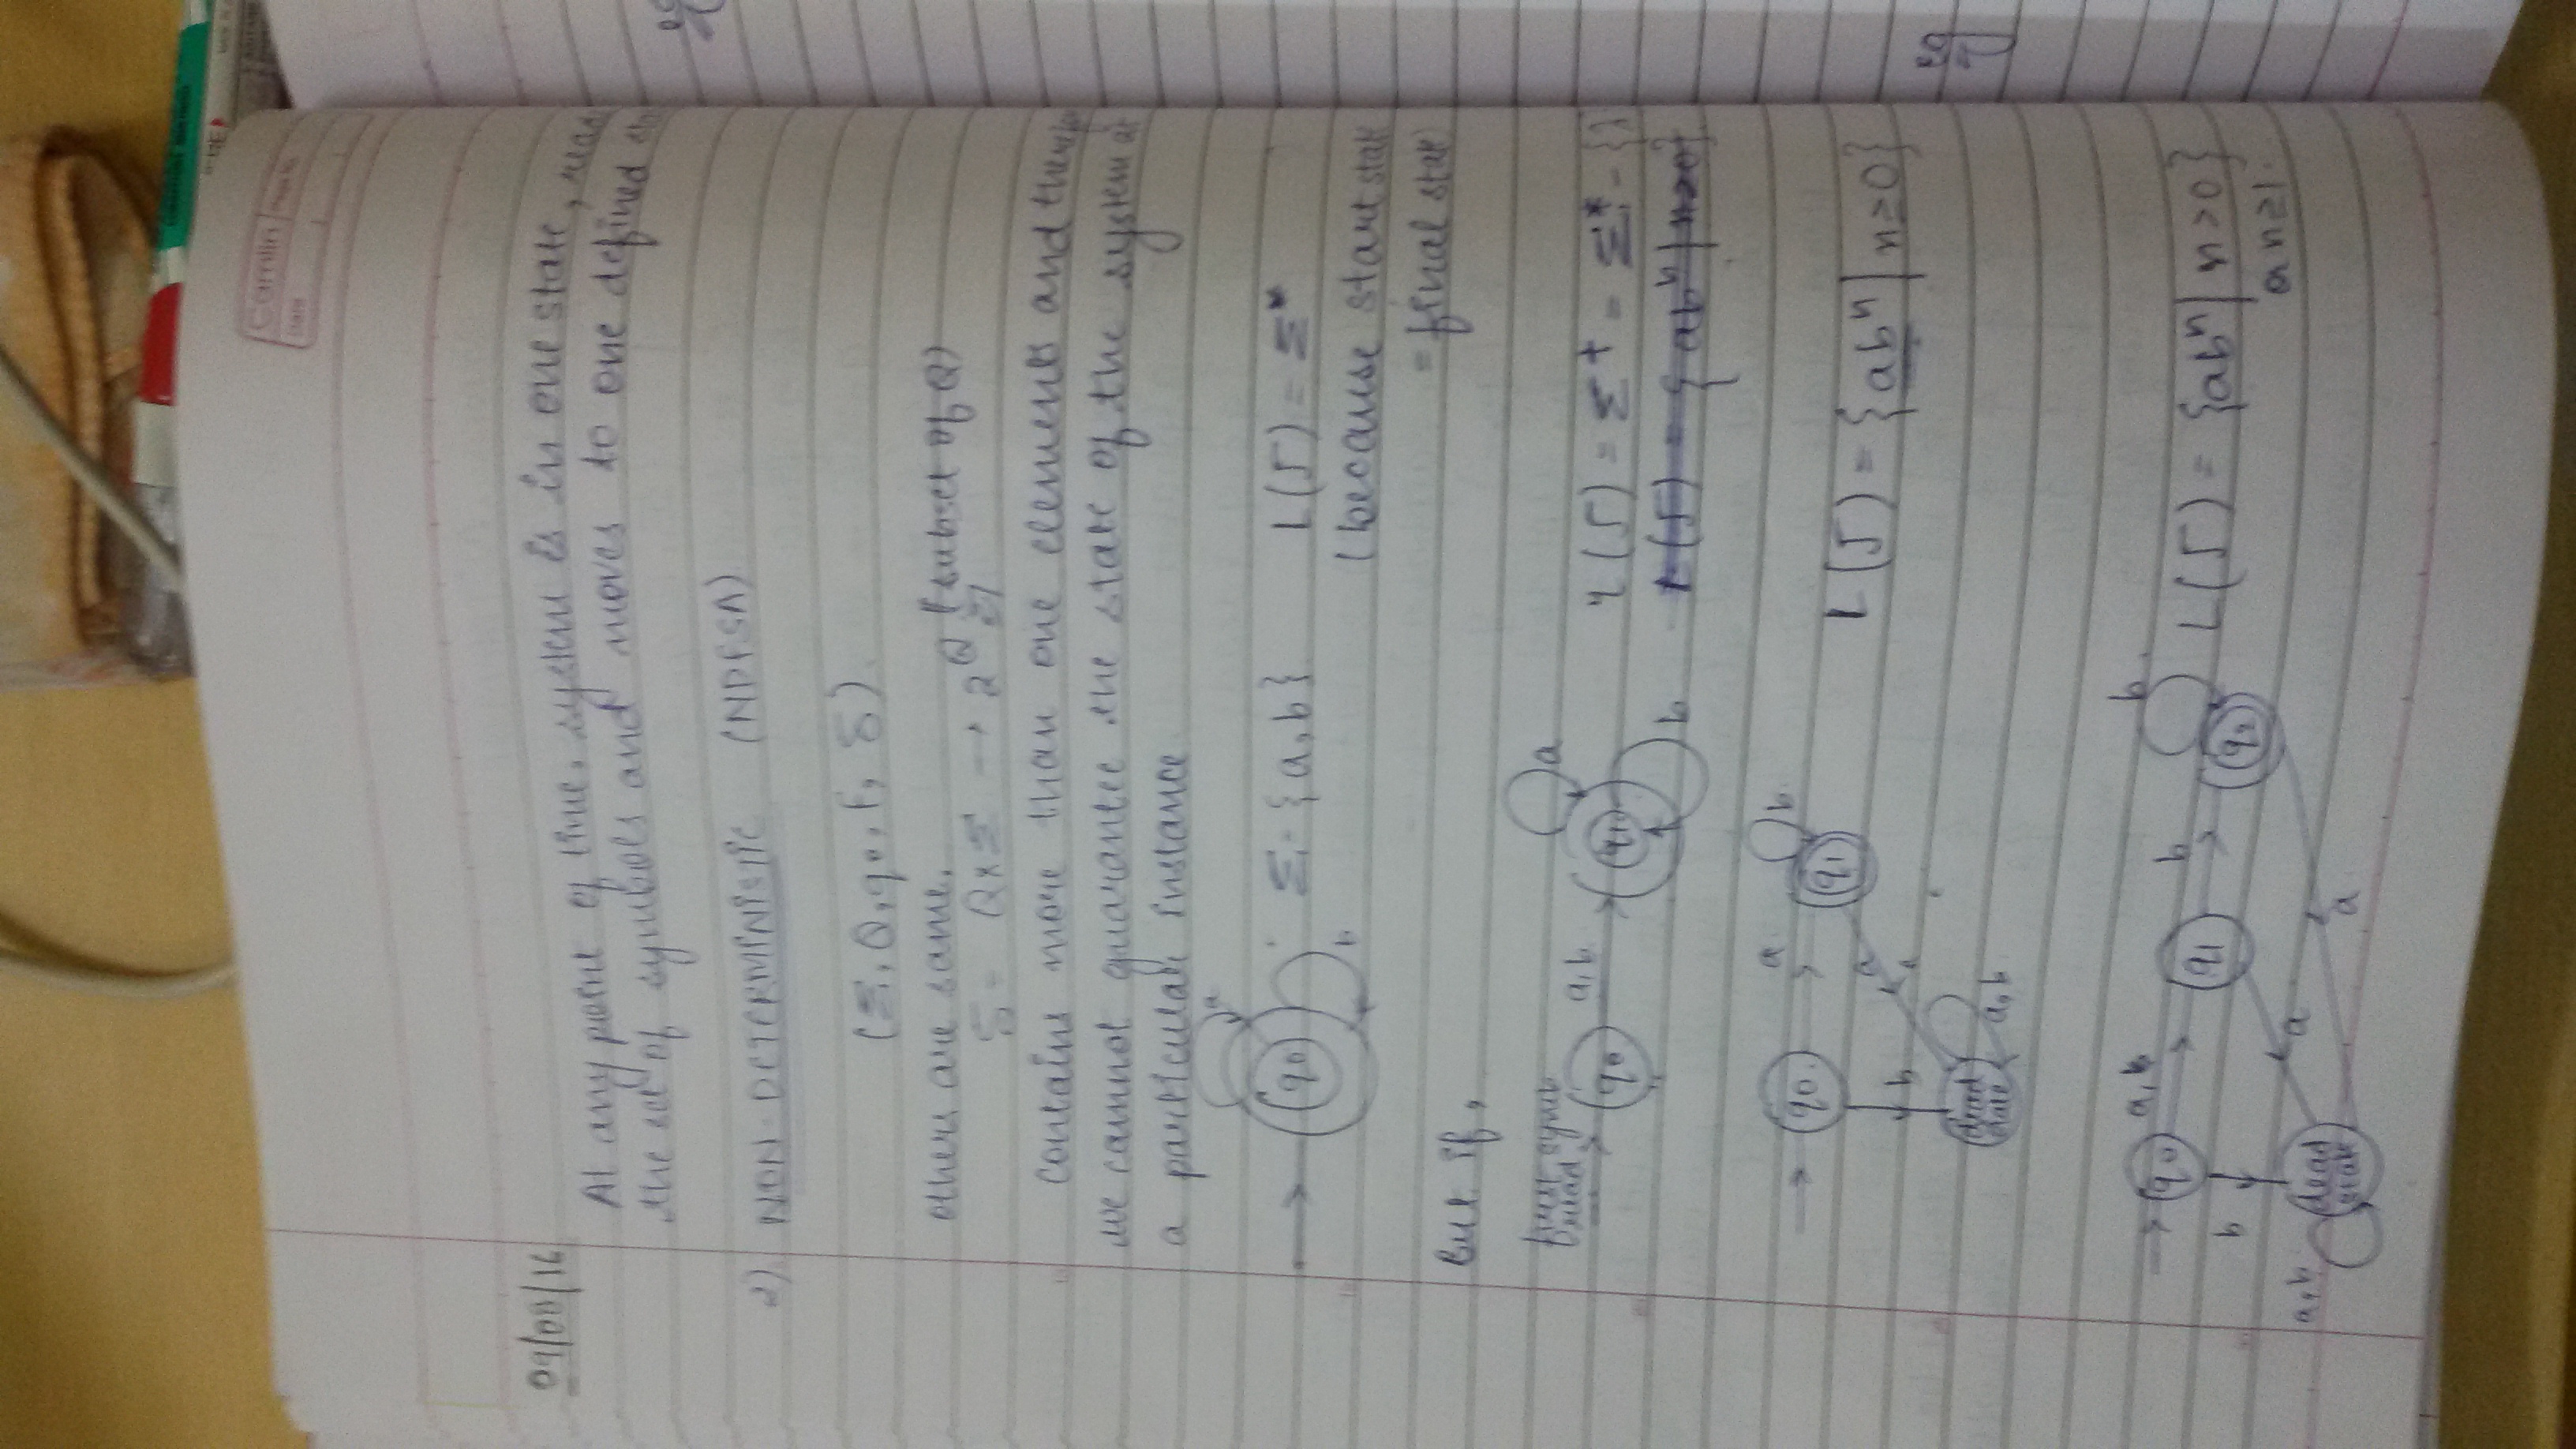 Camlin
Page No.
Date
09/08/16
At any point of time, system is in one state, reads
the set of symbols and moves to one defined
2) NON-DETERMINISTIC (NDFSA)
(Σ, Q, q0, F, δ)
others are same.
δ = Q×Σ → 2^Q (subset of Q)
contains more than one elements and
we cannot guarantee the state of the system at
a particular instance
a
q0
Σ = {a, b}
L(M) = Σ*
b
(because start state
= final state)
But if,
a
first symb
read
q0
a, b
q1
b
L(M) = Σ+ = Σ* - {λ
L(M) = {ab^n | n≥0}
q0
a
q1
b
b
a
a
L(M) = {ab^n | n≥0}
dead
state
a, b
q0
a, b
q1
b
q2
b
L(M) = {ab^n | n>0}
or n≥1.
b
a
a, b
dead
state
a
eg